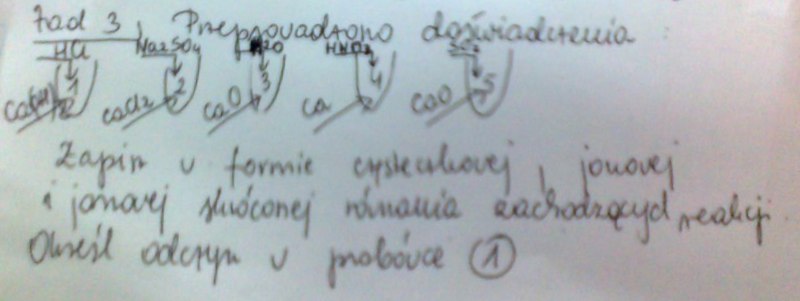 Zad 3, Przeprowadzono doświadczenia :
HCl Na2SO4 H2O HNO3
1 2 3 4 5
CaCl2 CaO Ca CaO
Zapisz w formie cząsteczkowej, jonowej
i jonowej skróconej równania zachodzących reakcji.
Określ odczyn w probówce ①